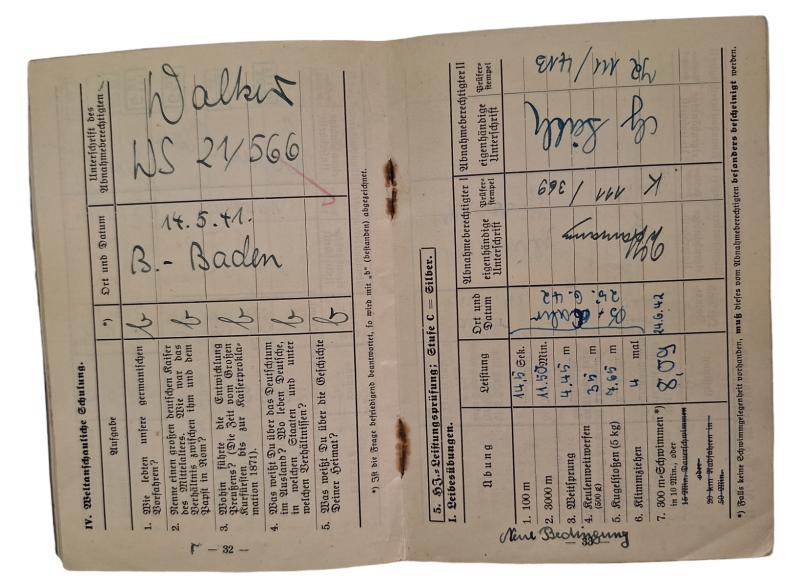 IV. Weltanschauliche Schulung.
Aufgabe
*)
Ort und Datum
Unterschrift des
Abnahmeberechtigten
1. Wie lebten unsere germanischen
Vorfahren?
b
2. Nenne einen großen deutschen Kaiser
des Mittelalters. Wie war das
Verhältnis zwischen ihm und dem
Papst in Rom?
b
3. Wohin führte die Entwicklung
Preußens? (Die Zeit vom Großen
Kurfürsten bis zur Kaiserprokla-
mation 1871).
b
4. Was weißt Du über das Deutschtum
im Ausland? Wo leben Deutsche,
in welchen Staaten und unter
welchen Verhältnissen?
b
5. Was weißt Du über die Geschichte
Deiner Heimat?
b
14.5.41.
B.-Baden
Walker
WS 21/566
*) Ist die Frage befriedigend beantwortet, so wird mit „b“ (bestanden) abgezeichnet.
— 32 —
5. HJ.-Leistungsprüfung; Stufe C = Silber.
I. Leibesübungen.
Übung
Leistung
Ort und
Datum
Abnahmeberechtigter I
eigenhändige
Unterschrift
Prüfer-
stempel
Abnahmeberechtigter II
eigenhändige
Unterschrift
Prüfer-
stempel
1. 100 m
14,5 Sek.
2. 3000 m
11.50 Min.
3. Weitsprung
4.45 m
4. Keulenweitwerfen
(500 g)
35 m
5. Kugelstoßen (5 kg)
7.65 m
6. Klimmziehen
4 mal
7. 300 m-Schwimmen *)
in 10 Min., oder
8,09
24.6.42
15 Min. Dauerschwimmen
oder
20 km Radfahren in
50 Min.
B.-Baden
25.6.42
K 111/369
*) Falls keine Schwimmgelegenheit vorhanden, muß dieses vom Abnahmeberechtigten besonders bescheinigt werden.
— 33 —
Neue Bedingung